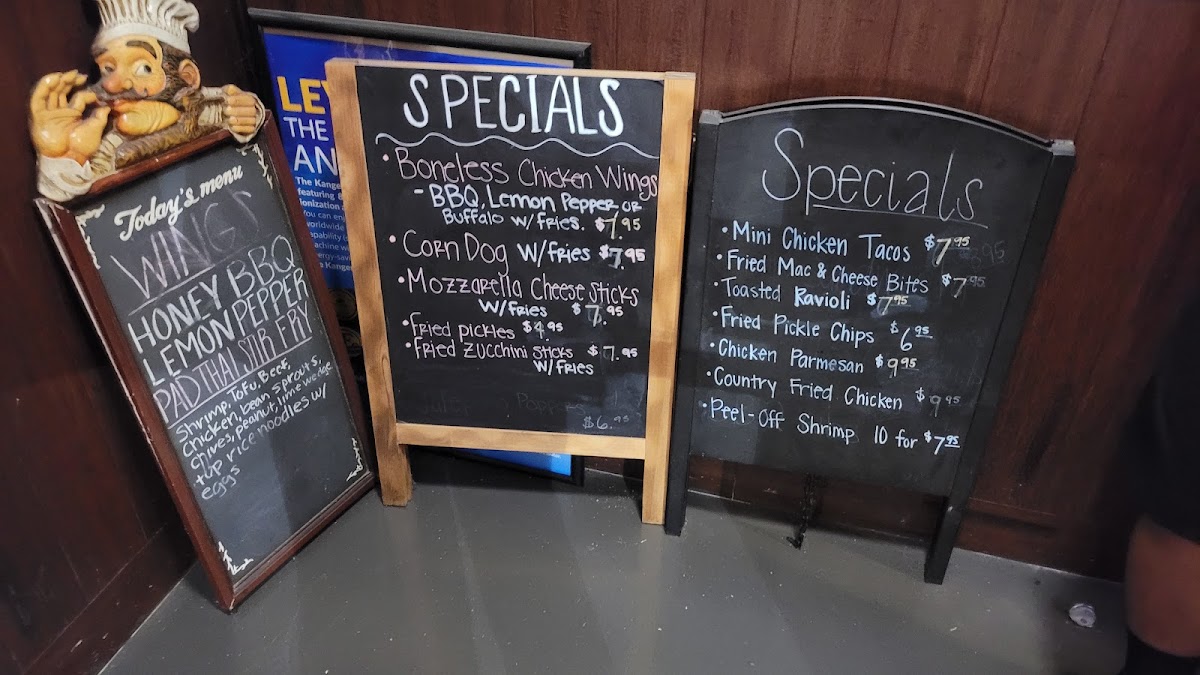 Today's menu
WINGS
HONEY BBQ
LEMON PEPPER
PAD THAI STIR FRY
Shrimp, Tofu, Beef,
chicken, bean sprouts,
chives, peanut, lime wedge
+up rice noodles w/
eggs
LE
THE
AN
The Kange
featuring
ionization
You can en
worldwide
SPECIALS
• Boneless Chicken Wings
- BBQ, Lemon Pepper or
Buffalo w/ fries. $7.95
• Corn Dog w/fries $7.95
• Mozzarella Cheese Sticks
w/fries $7.95
• Fried pickles $4.95
• Fried zucchini sticks $7.95
w/fries
$6.95
Specials
• Mini Chicken Tacos $7.95
• Fried Mac & Cheese Bites $7.95
• Toasted Ravioli $7.95
• Fried Pickle Chips $6.95
• Chicken Parmesan $9.95
• Country Fried Chicken $9.95
• Peel-Off Shrimp 10 for $7.95